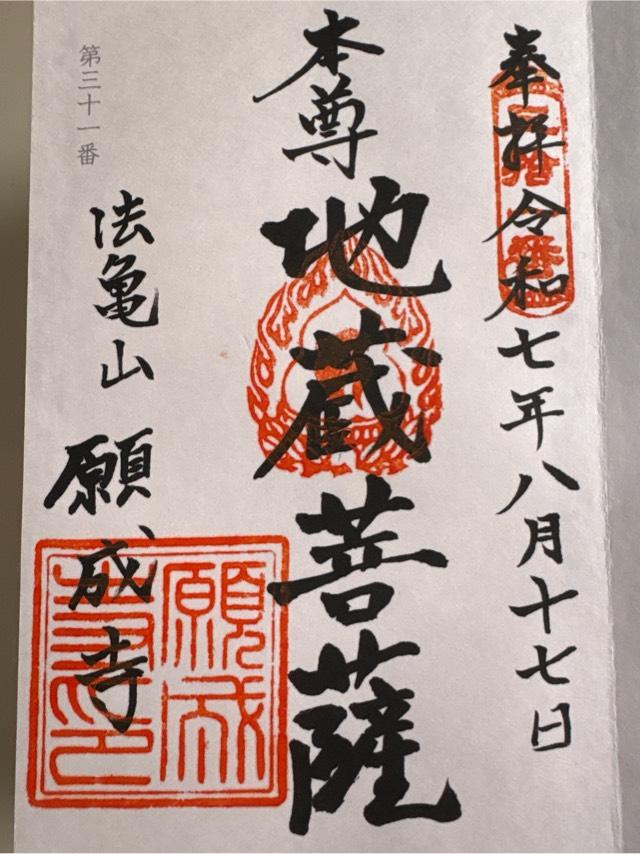 奉拝令和七年八月十七日
本尊地蔵菩薩
第三十一番
法亀山願成寺
願成
寺印